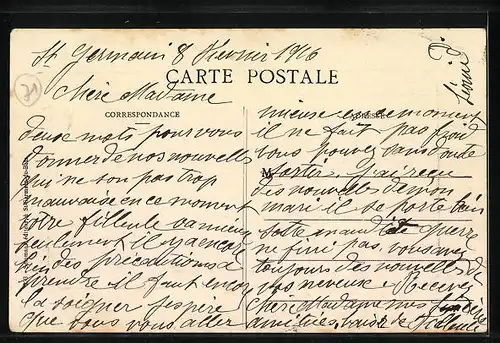 St Germain 8 Février 1916
CARTE POSTALE
Chère Madame
CORRESPONDANCE
deux mots pour vous
donner de nos nouvelles
qui ne son pas trop
mauvaise en ce moment
votre filleule va mieux
seulement il y a encor
bien des précautions a
prendre il faut encor
la soigner j'espère
que vous vous aller
mieuse en ce moment
il ne fait pas froid
vous pouvez sans doute
sortir. J'ai reçu
des nouvelles de mon
mari il se porte bien
cette maudite guerre
ne fini pas, vous avez
toujours des nouvelles de
vos neveux. Recevez
chère Madame nos
amitiés, baiser de filleule
71